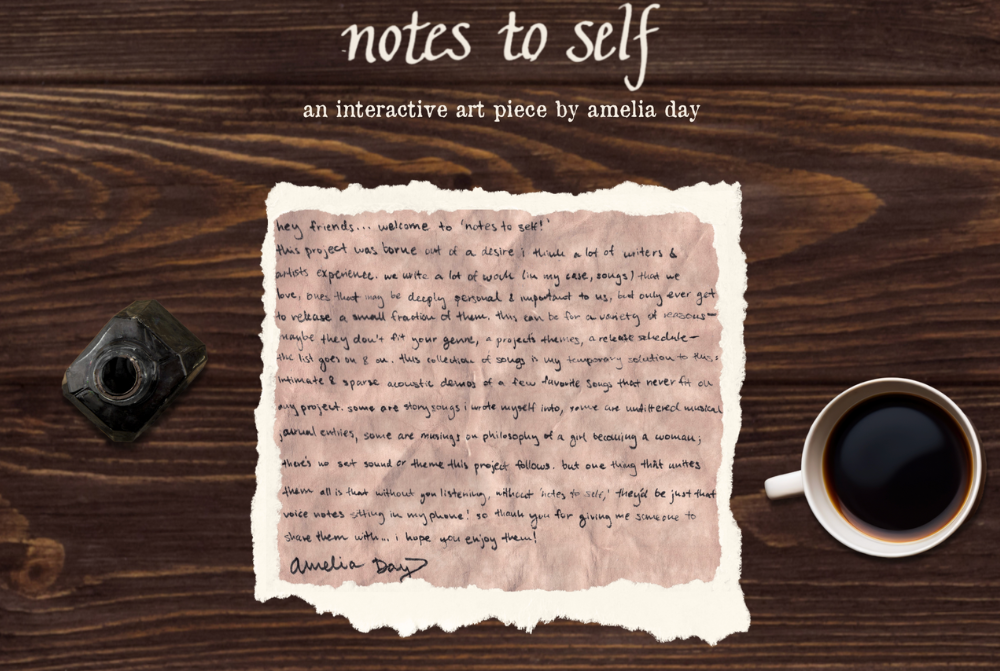 notes to self
an interactive art piece by amelia day
hey friends... welcome to 'notes to self!'
this project was borne out of a desire i think a lot of writers &
artists experience. we write a lot of work (in my case, songs) that we
love, ones that may be deeply personal & important to us, but only ever get
to release a small fraction of them. this can be for a variety of reasons-
maybe they don't fit your genre, a projects themes, a release schedule-
the list goes on & on. this collection of songs is my temporary solution to this:
intimate & sparse acoustic demos of a few favorite songs that never fit on
any project. some are storysongs i wrote myself into, some are unfiltered musical
journal entries, some are musings on philosophy of a girl becoming a woman;
there's no set sound or theme this project follows. but one thing that unites
them all is that without you listening, without 'notes to self,' they'd be just that
voice notes sitting in my phone! so thank you for giving me someone to
share them with... i hope you enjoy them!
Amelia Day